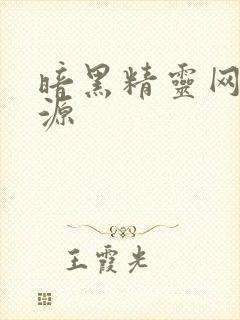 暗黑精靈网
源
王霞光